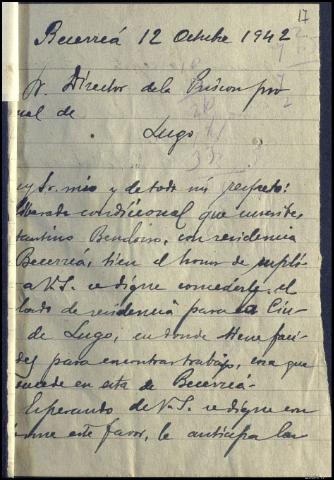 17
Becerreá 12 Octubre 1942
Sr. Director de la Prision pro
cial de
Lugo
uy Sr. mio y de todo mi respeto:
liberado condicional que suscribe
tantino Bendoiro, con residencia
Becerreá, tiene el honor de supli
a V.S. se digne concederle el
lado de residencia para la Ciu
de Lugo, en donde tiene faci
des para encontrar trabajo, cosa que
sucede en esta de Becerreá.
Esperando de V.S. se digne con
me este favor, le anticipa las